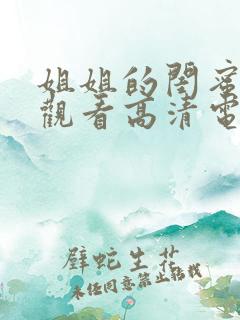 姐姐的閨蜜
觀看高清電
壁蛇生花
未经同意禁止转载